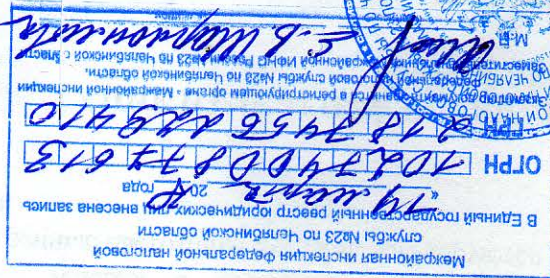 Межрайонная инспекция Федеральной налоговой
службы №23 по Челябинской области
В Единый государственный реестр юридических лиц внесена запись
« 14 » марта 20 года
ОГРН 1027400877613
ГРН 2187456229410
Экземпляр документа хранится в регистрирующем органе - Межрайонной инспекции
Федеральной налоговой службы №23 по Челябинской области.
Заместитель Межрайонной ИФНС России №23 по Челябинской области
Е. В.
М.П.